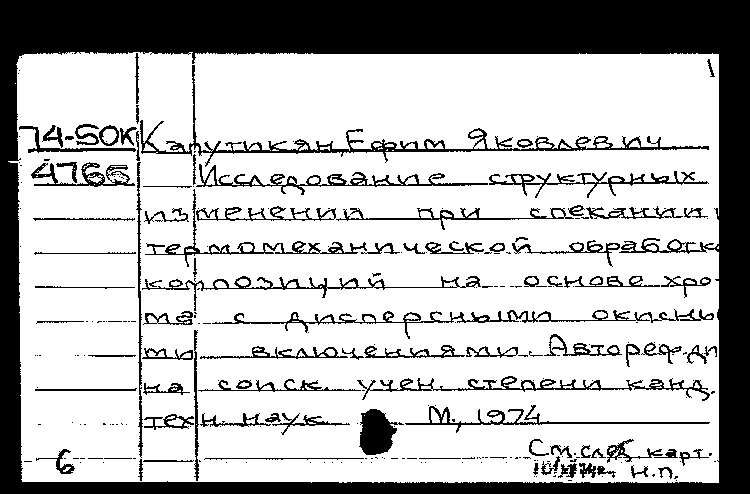 1
74-50К Капутикян, Ефим Яковлевич
4766 Исследование структурных
изменений при спекании и
термомеханической обработк
композиций на основе хро-
ма с дисперсными окисны
ми включениями. Автореф. ди
на соиск. учен. степени канд.
техн. наук М., 1974
См. след. карт.
6 Н.П.